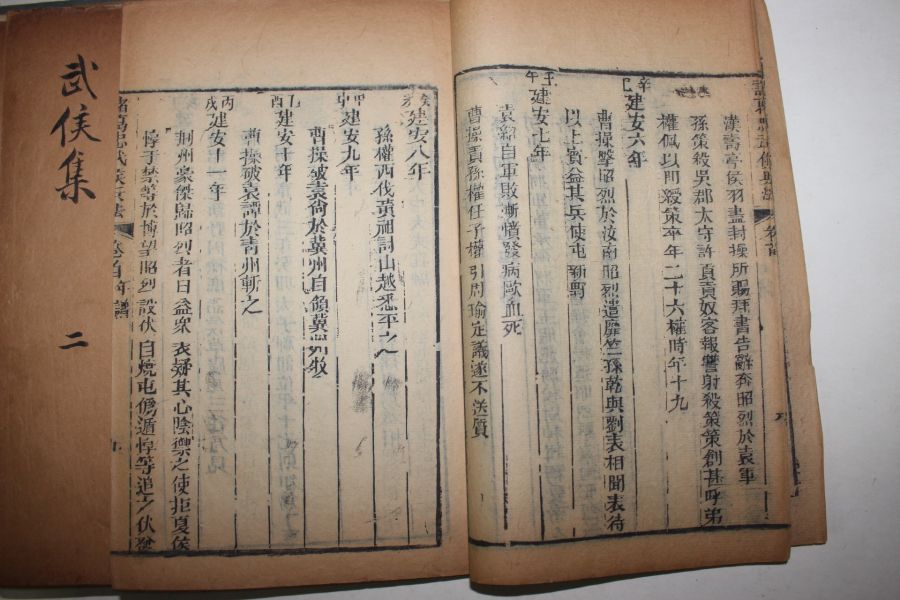 漢壽亭侯羽盡封操所賜拜書告辭奔昭烈於袁軍
孫策殺吳郡太守許貢貢奴客報讐射殺策策創甚呼弟
權佩以印綬策卒年二十六權時年十九
辛巳
建安六年
曹操擊昭烈於汝南昭烈遣麋竺孫乾與劉表相聞表待
以上賓益其兵使屯新野
壬午
建安七年
袁紹自軍敗慚憤發病歐血死
曹操責孫權任子權引周瑜定議遂不送質
癸未
建安八年
孫權西伐黃祖討山越悉平之
甲申
建安九年
曹操破袁尙於冀州自領冀州牧
乙酉
建安十年
曹操破袁譚於青州斬之
丙戌
建安十一年
荆州豪傑歸昭烈者日益衆表疑其心陰禦之使拒夏侯
惇于禁等於博望昭烈設伏自燒屯僞遁惇等追之伏發
諸葛忠武侯兵法
卷首年譜
九
武侯集
二